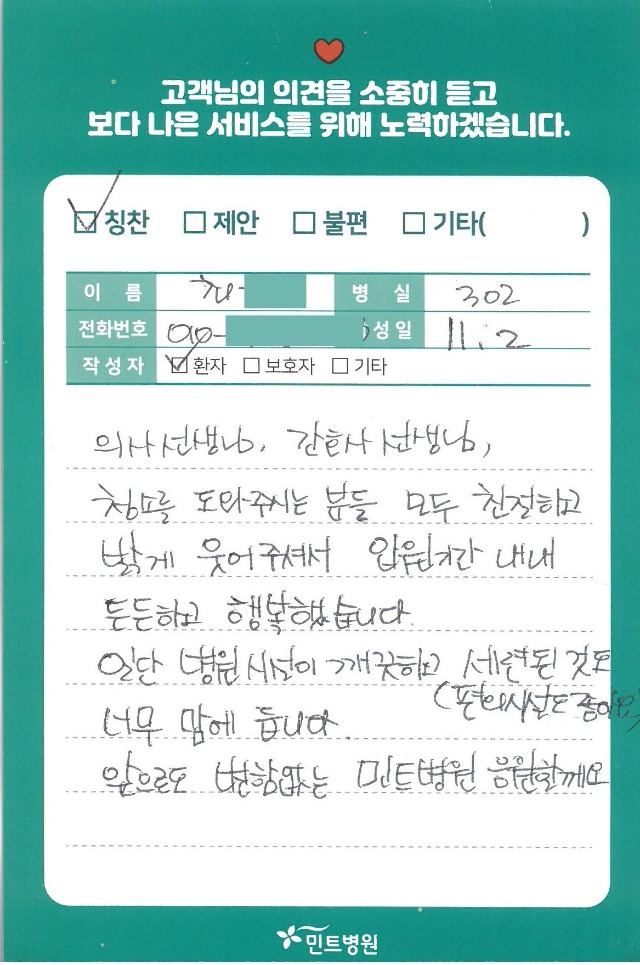 고객님의 의견을 소중히 듣고
보다 나은 서비스를 위해 노력하겠습니다.
칭찬 제안 불편 기타( )
이 름 병 실 302
전화번호 010- 성일 11.2
작성자 환자 보호자 기타
의사선생님, 간호사 선생님,
청소를 도와주시는 분들 모두 친절하고
밝게 웃어주셔서 입원기간 내내
든든하고 행복했습니다.
일단 병원시설이 깨끗하고 세련된 것도
(편의시설도 좋아요)
너무 맘에 듭니다.
앞으로도 변함없는 민트병원 응원할께요
민트병원